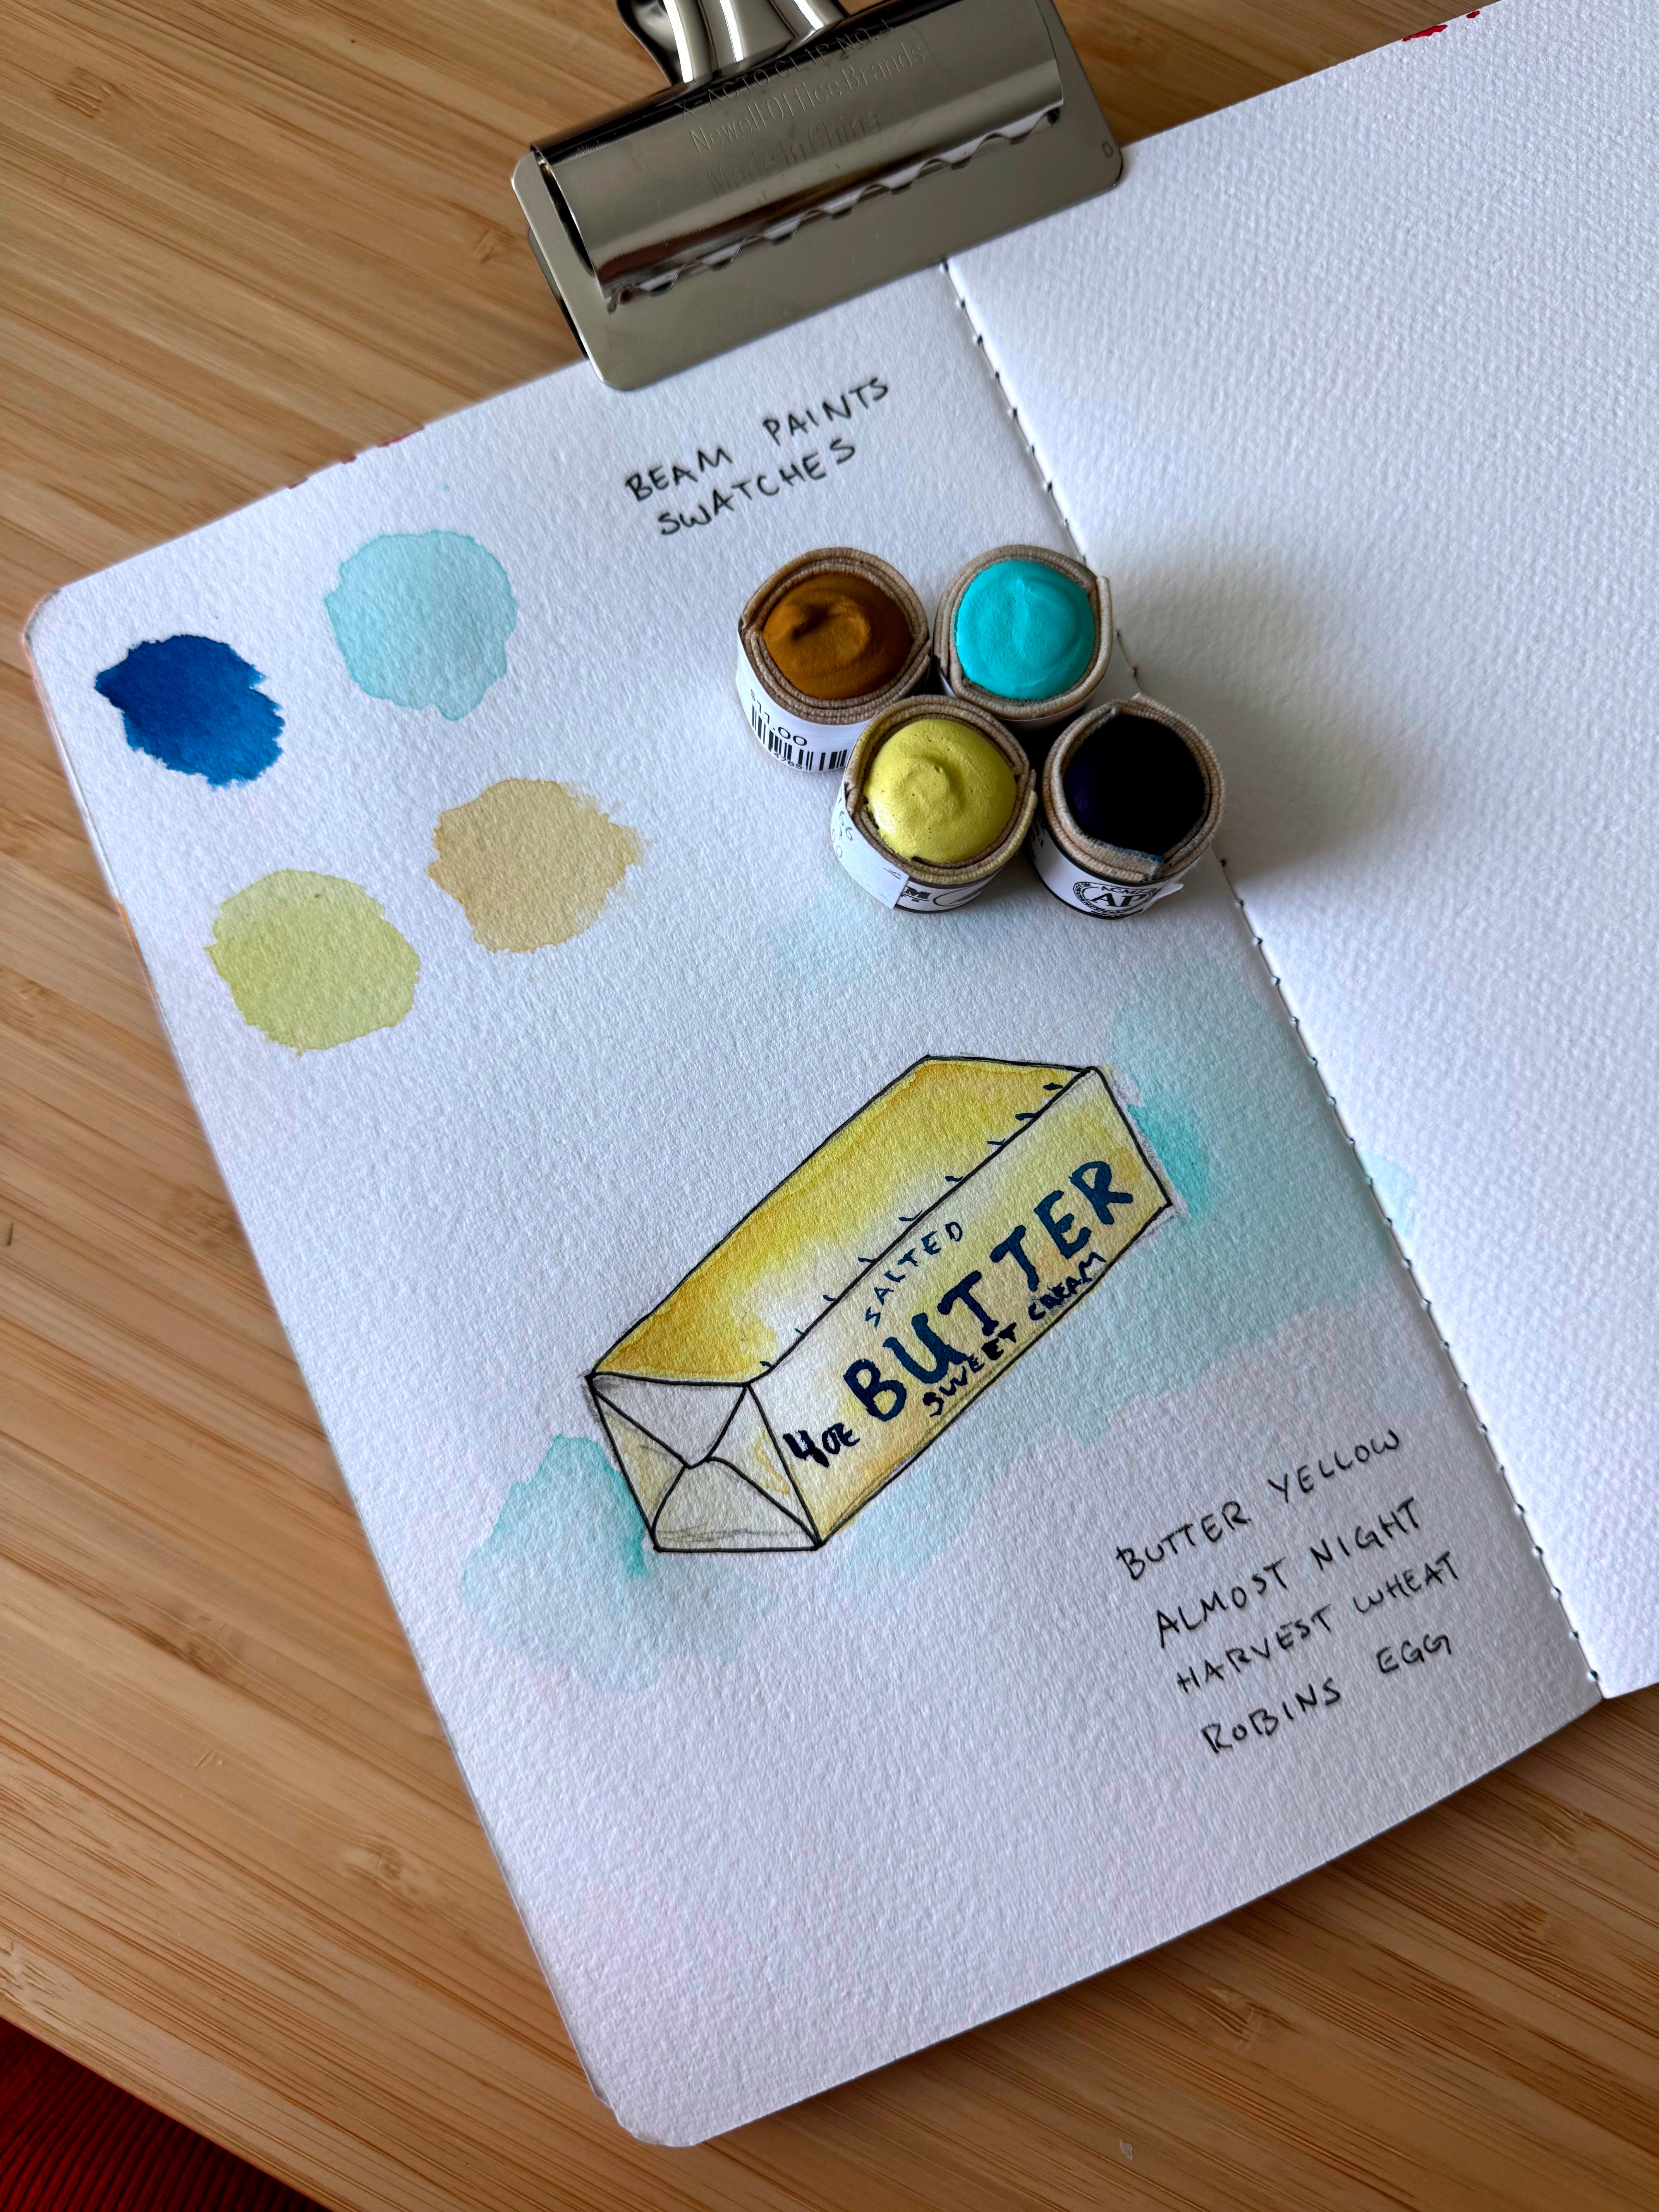 X-ACTO CLIP NO.4
Newell Office Brands
Made In China
BEAM PAINTS
SWATCHES
SALTED
BUTTER
SWEET CREAM
4OZ
BUTTER YELLOW
ALMOST NIGHT
HARVEST WHEAT
ROBINS EGG